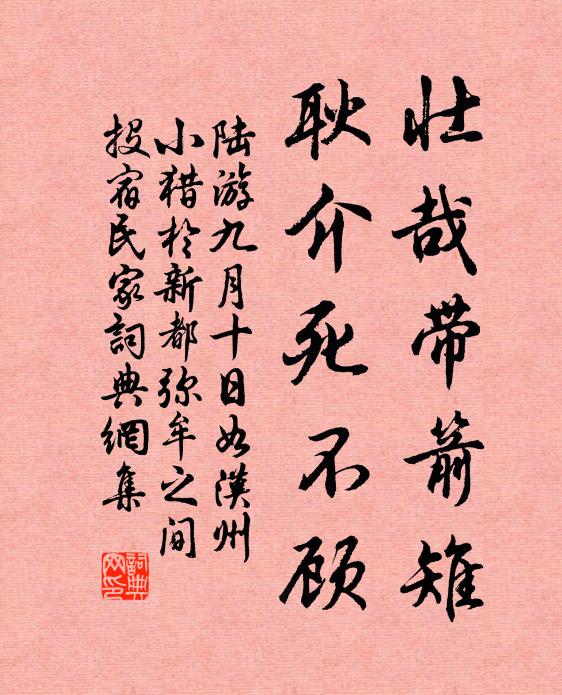 壮哉带箭雉
耿介死不顾
陆游九月十日如漢州
小猎於新都弥牟之间
投宿民家詞典網集
詞典网印